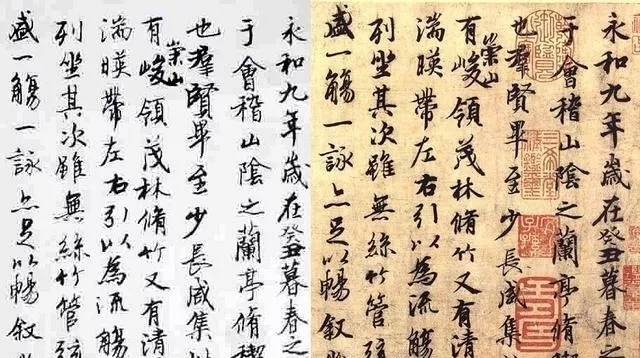 永和九年歲在癸丑暮春之
于會稽山陰之蘭亭脩禊
也羣賢畢至少長咸集
崇山
有峻領茂林脩竹又有清
湍暎帶左右引以為流觴
列坐其次雖無絲竹管弦
盛一觴一詠亦足以暢叙
永和九年歲在癸丑暮春之
于會稽山陰之蘭亭脩
也羣賢畢至少長咸集
崇山
有峻領茂林脩竹又有清
湍暎帶左右引以為流觴
列坐其次雖無絲竹管弦
盛一觴一詠亦足以暢叙